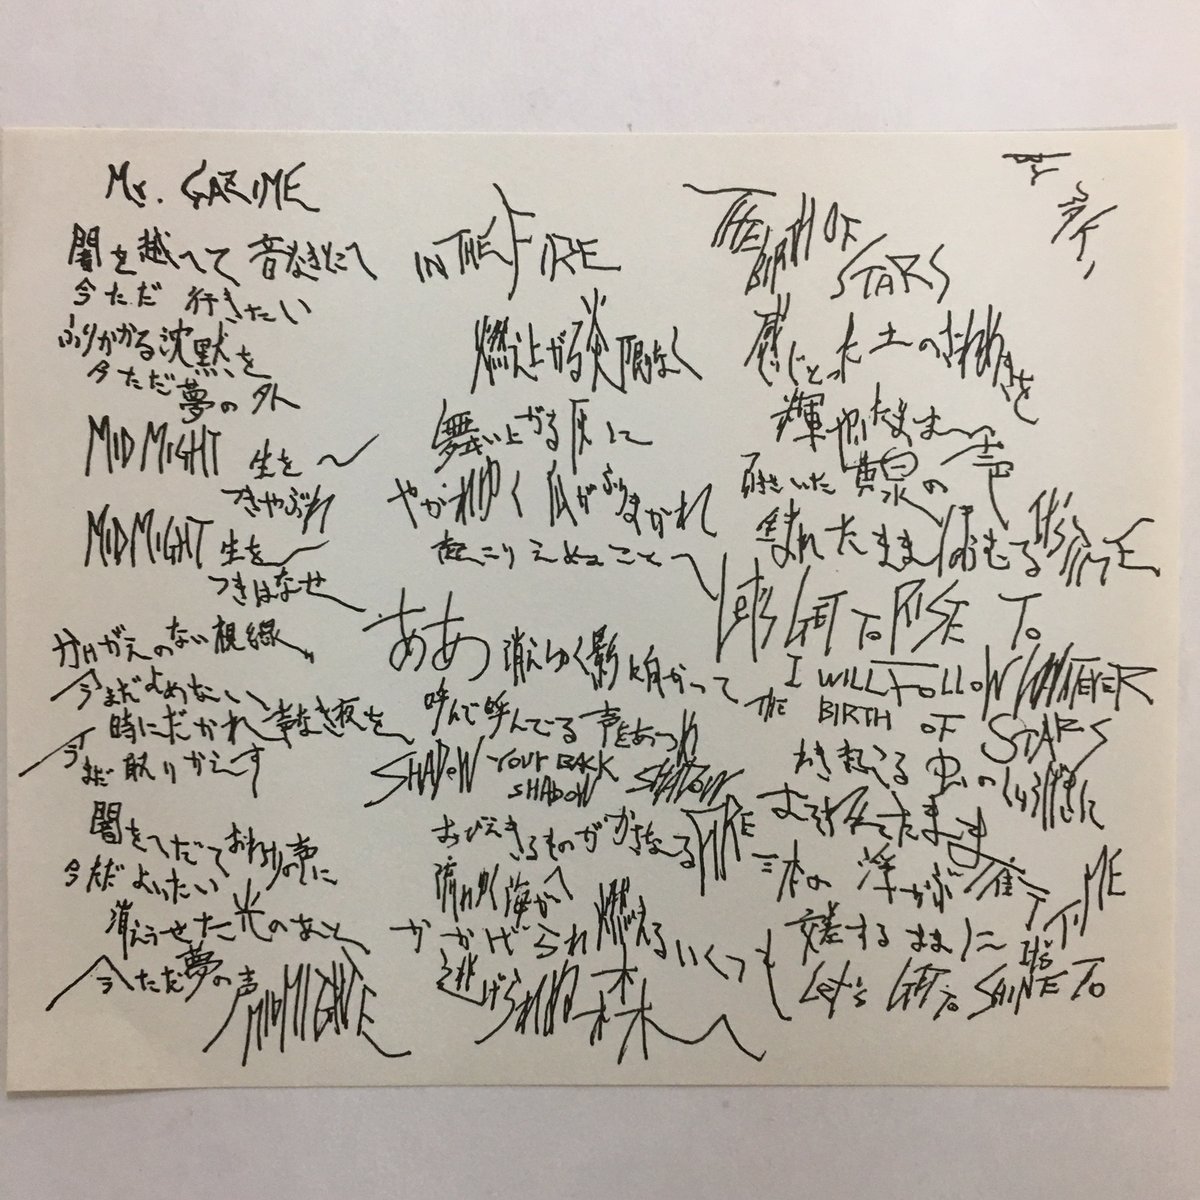 Mr. GAZIME
闇を越へて 音なきとこへ
今ただ 行きたい
ふりかかる沈黙を
今ただ夢の外
MIDMIGHT 生を
つきやぶれ
MIDMIGHT 生を
つきはなせ
がえのない視線
今まだよめない
時にだかれ 声なき夜を
今まだ取りかえす
闇をへだて おわりの声に
今ただ よいたい
消えうせた光のあと
今ただ夢の声
MIDMIGHT
IN THE FIRE
燃え上がる炎 限りなく
舞い上がる灰に
やかれゆく 瓜がぶりまかれ
起こりえぬこと
ああ 消えゆく影に向かって
呼んで呼んでる 声をあつめ
SHADOW YOUR BACK
SHADOW SHADOW
おびえきるものがかさなる FIRE
流れゆく藻が
かかげられ 燃える いくつも
逃げられぬ 森
THE BIRTH OF STARS
BY
感じとった土のざわめきを
輝やいたまま
声
いた 黄泉の
まれたまま IT'S TIME
LET'S GET TO RISE TO
I WILL FOLLOW WHATEVER
THE BIRTH OF STARS
わき起こる 虫の に
まま
三本の 浮かぶ TIME
交差するままに IT'S
LET'S GET TO SHINE TO